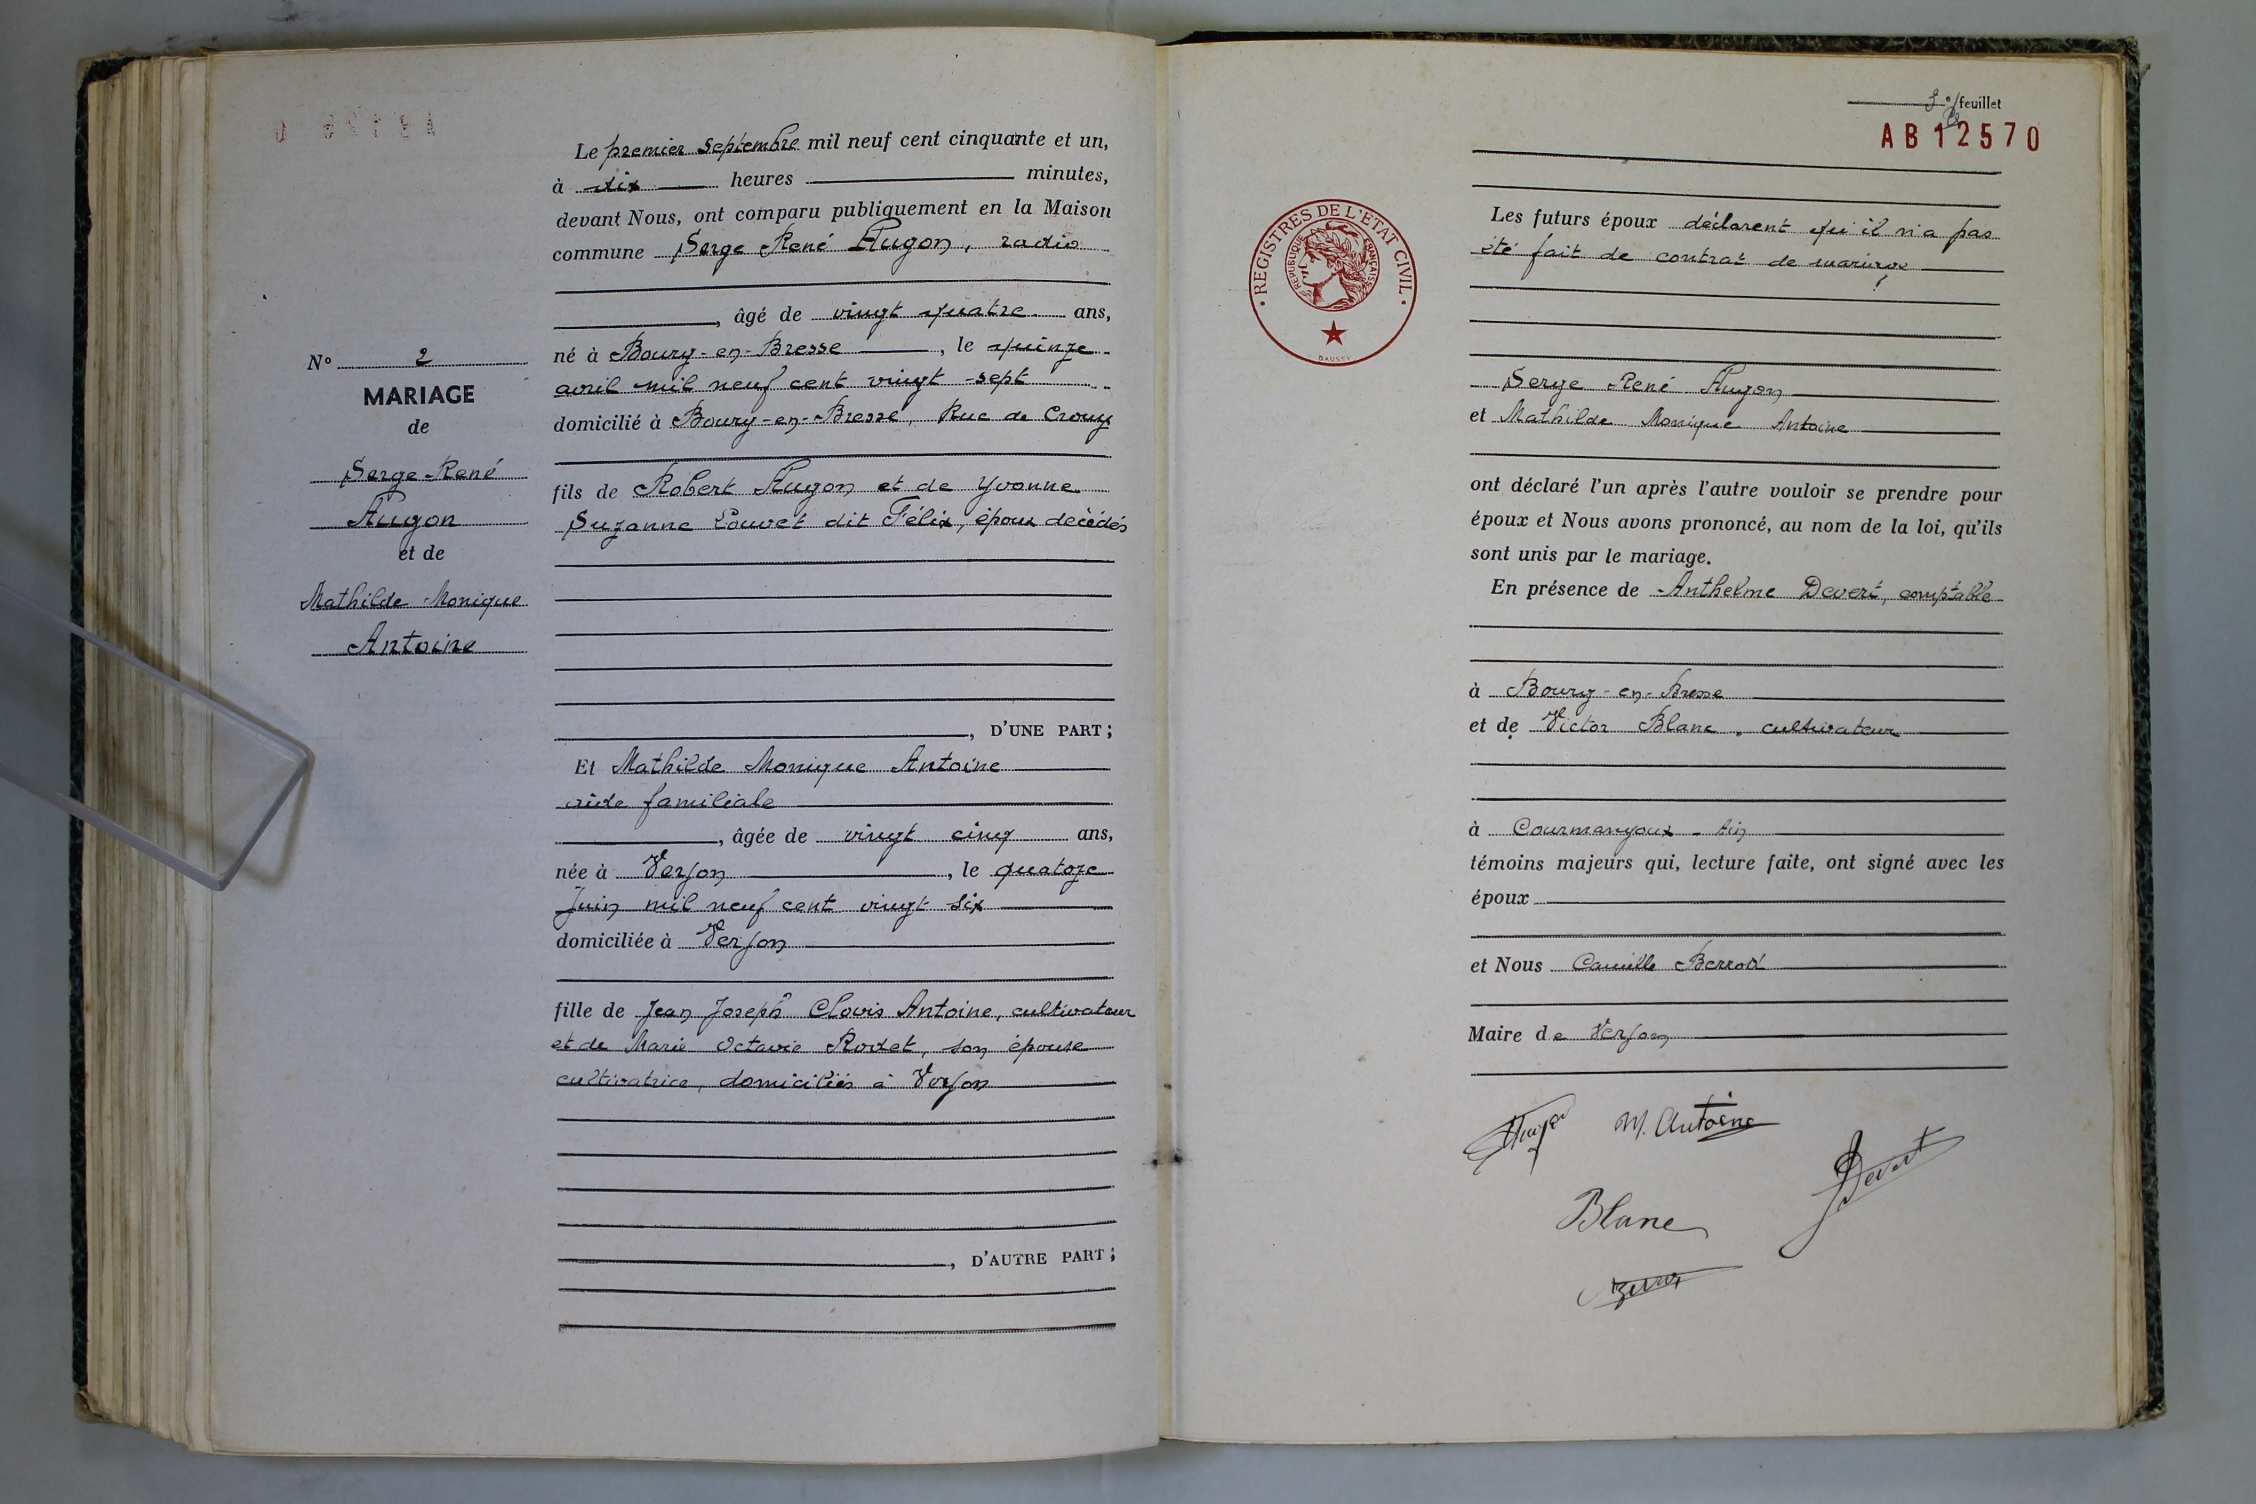 Le premier septembre mil neuf cent cinquante et un,
à dix heures minutes,
devant Nous, ont comparu publiquement en la Maison
commune Serge René Hugon, radio
, âgé de vingt quatre ans,
né à Bourg-en-Bresse, le quinze
avril mil neuf cent vingt-sept
domicilié à Bourg-en-Bresse, Rue de Crouy
fils de Robert Hugon et de Yvonne
Suzanne Louvet dit Félix, époux décédés
, D'UNE PART;
Et Mathilde Monique Antoine
aide familiale
, âgée de vingt cinq ans,
née à Verjon, le quatorze
Juin mil neuf cent vingt six
domiciliée à Verjon
fille de Jean Joseph Clovis Antoine, cultivateur
et de Marie Octavie Rodet, son épouse
cultivatrice, domiciliés à Verjon
, D'AUTRE PART;
N° 2
MARIAGE
de
Serge René
Hugon
et de
Mathilde Monique
Antoine
feuillet
AB 12570
REGISTRES DE L'ETAT CIVIL
REPUBLIQUE FRANÇAISE
DAUSSY
Les futurs époux déclarent qu'il n'a pas
été fait de contrat de mariage
Serge René Hugon
et Mathilde Monique Antoine
ont déclaré l'un après l'autre vouloir se prendre pour
époux et Nous avons prononcé, au nom de la loi, qu'ils
sont unis par le mariage.
En présence de Anthelme Devert, comptable
à Bourg-en-Bresse
et de Victor Blanc, cultivateur
à Courmangoux - Ain
témoins majeurs qui, lecture faite, ont signé avec les
époux
et Nous Camille Berrod
Maire de Verjon
M. Antoine
Devert
Blanc